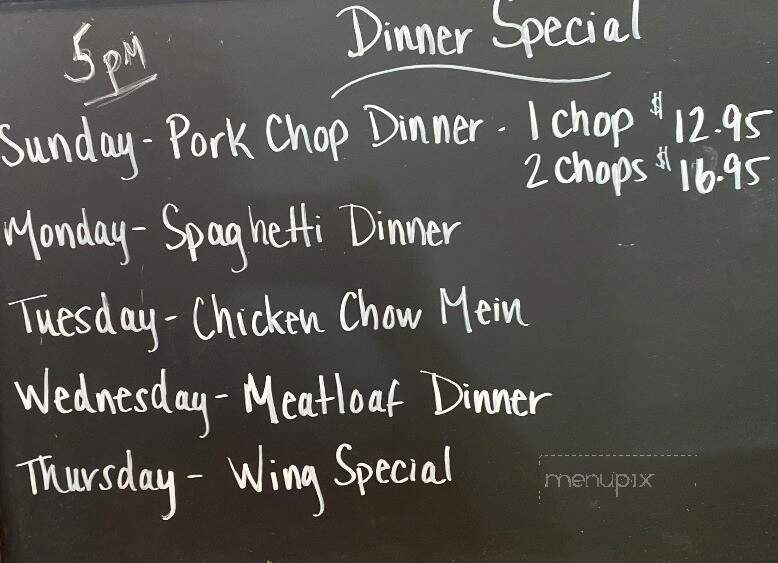 5pm
Dinner Special
Sunday - Pork Chop Dinner - 1 chop $12.95
2 chops $16.95
Monday - Spaghetti Dinner
Tuesday - Chicken Chow Mein
Wednesday - Meatloaf Dinner
Thursday - Wing Special
menupix